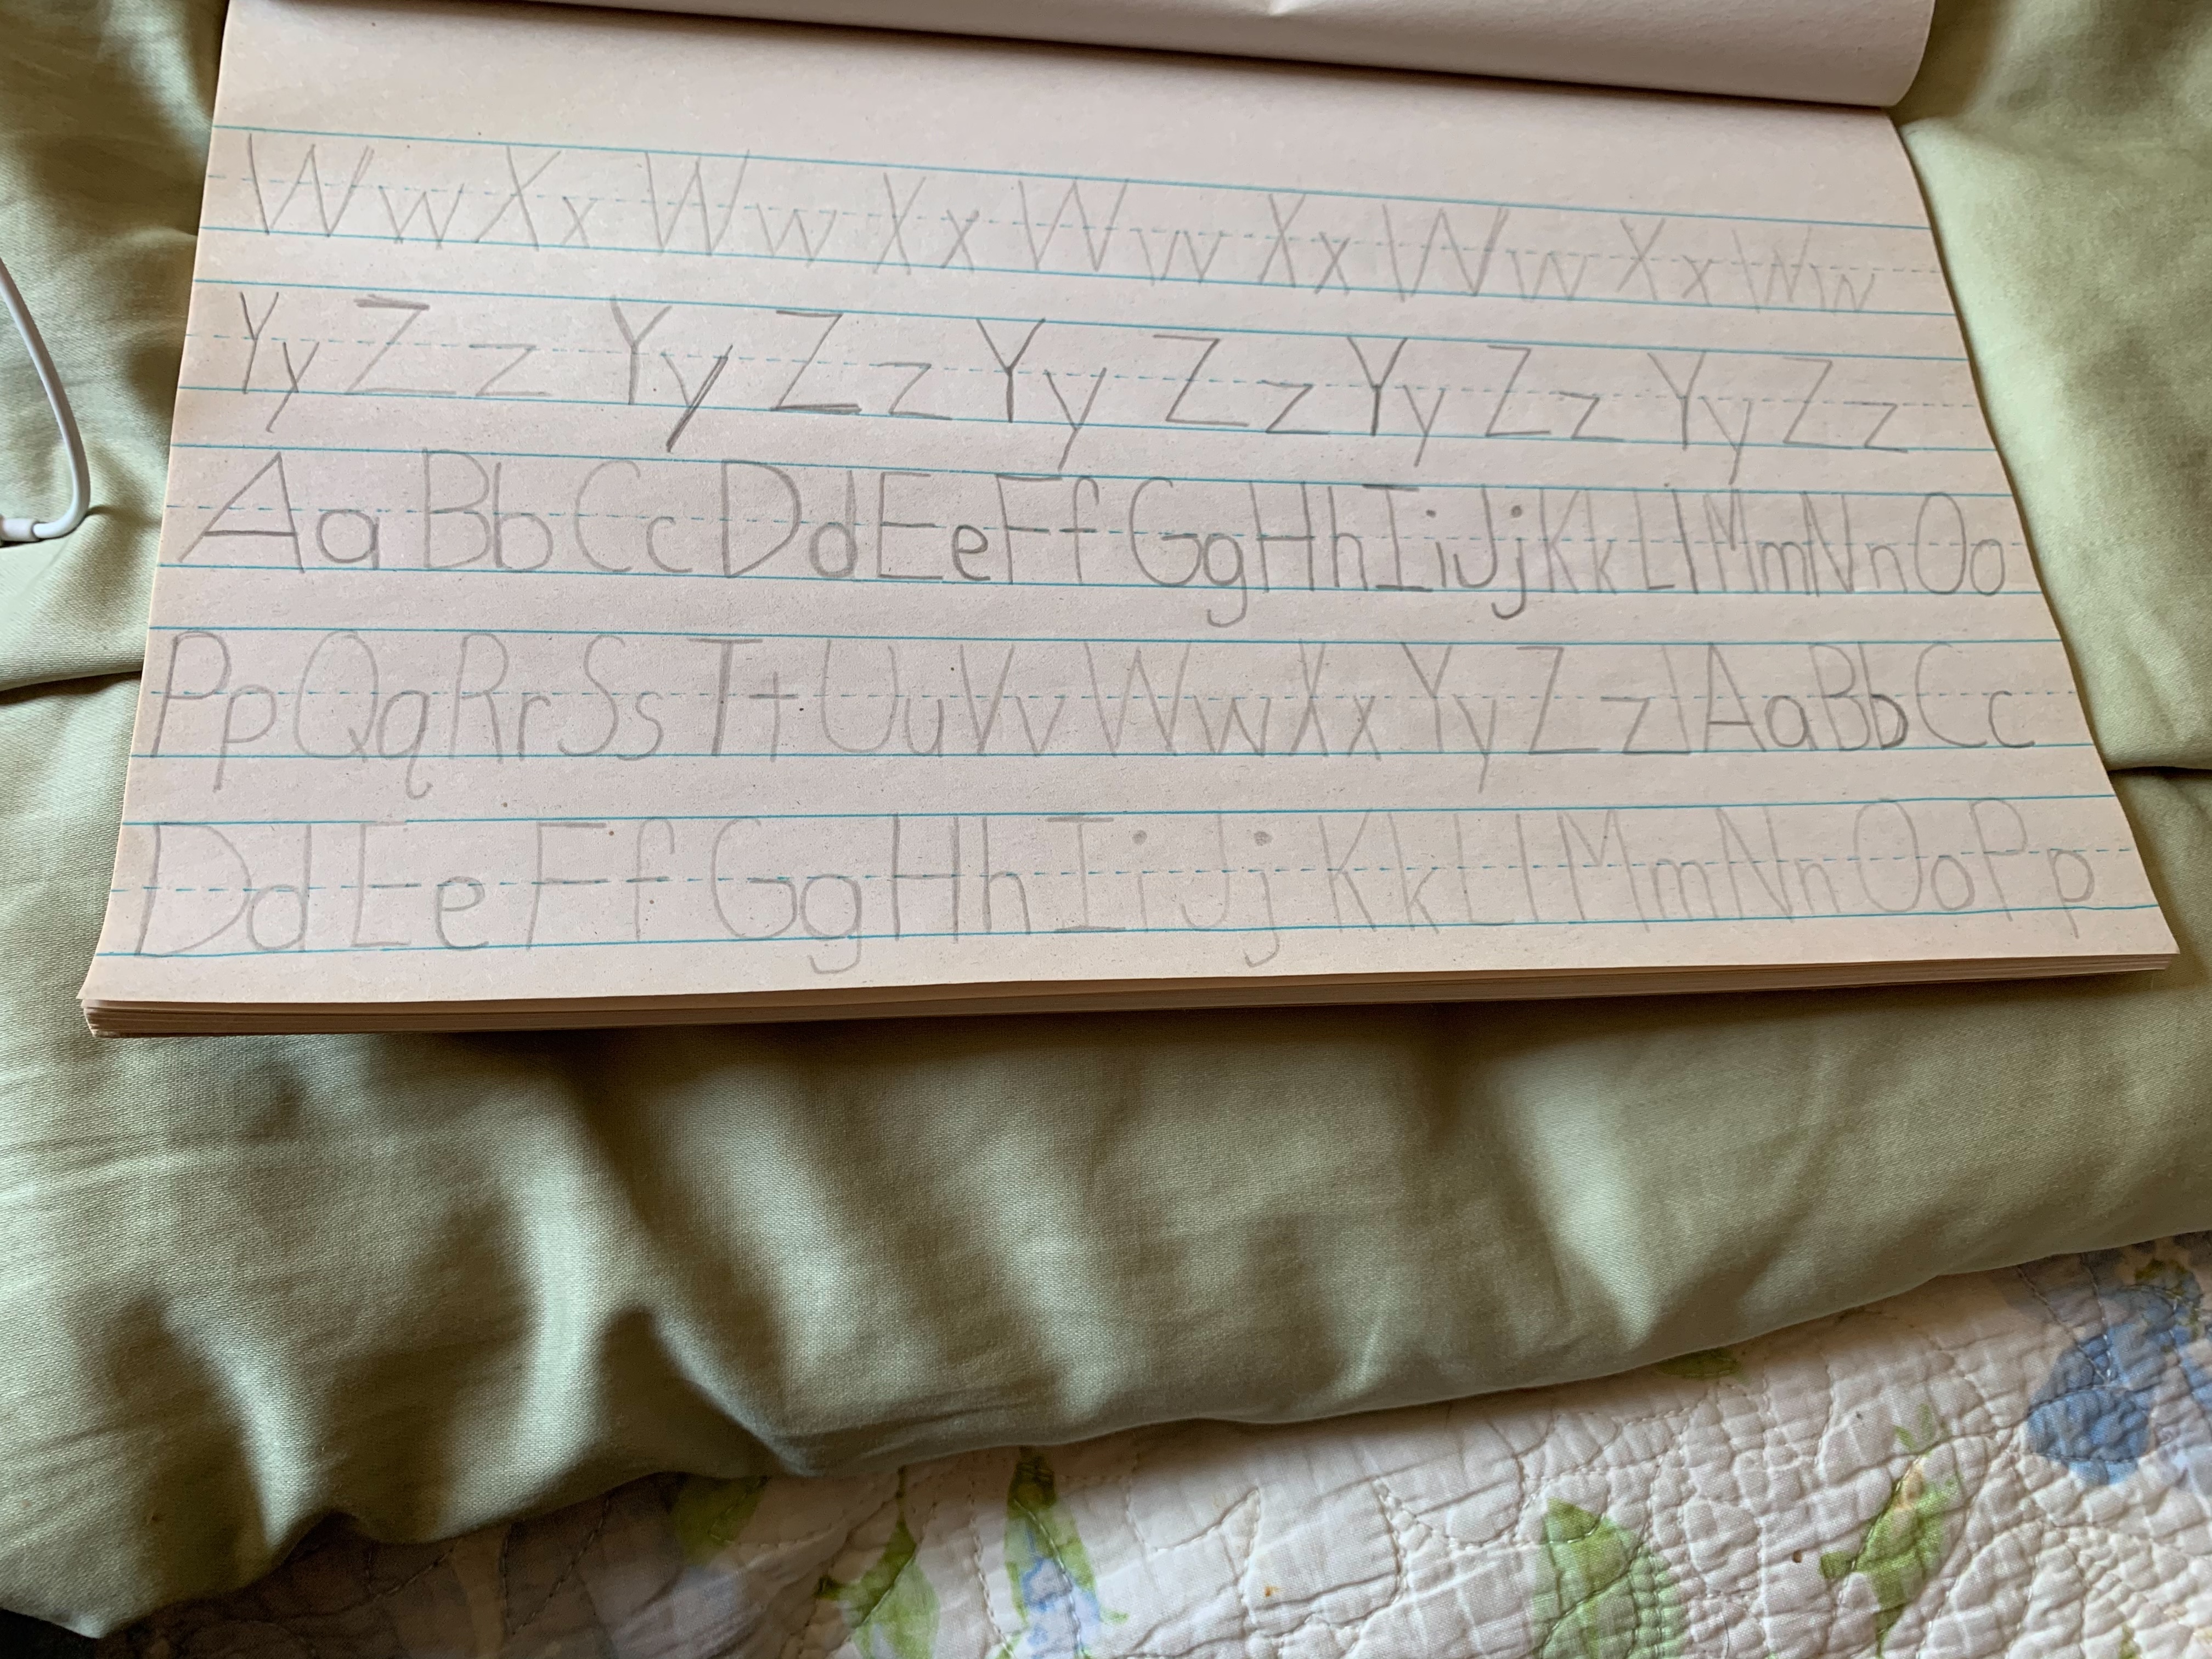 Ww Xx Ww Xx Ww Xx Ww Xx Ww
Yy Zz Yy Zz Yy Zz Yy Zz Yy Zz
Aa Bb Cc Dd Ee Ff Gg Hh Ii Jj Kk Ll Mm Nn Oo
Pp Qq Rr Ss Tt Uu Vv Ww Xx Yy Zz | Aa Bb Cc
Dd Ee Ff Gg Hh Ii Jj Kk Ll Mm Nn Oo Pp